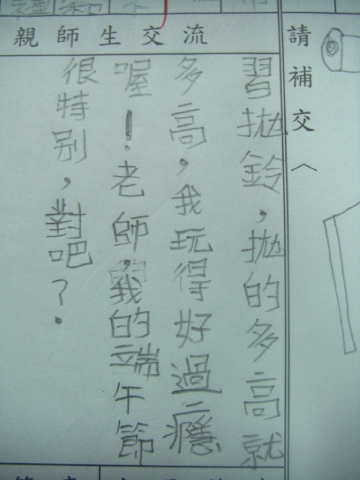 親師生交流
請補交
習拋鈴，拋的多高就
多高，我玩得好過癮
喔！老師，我的端午節
很特別，對吧？